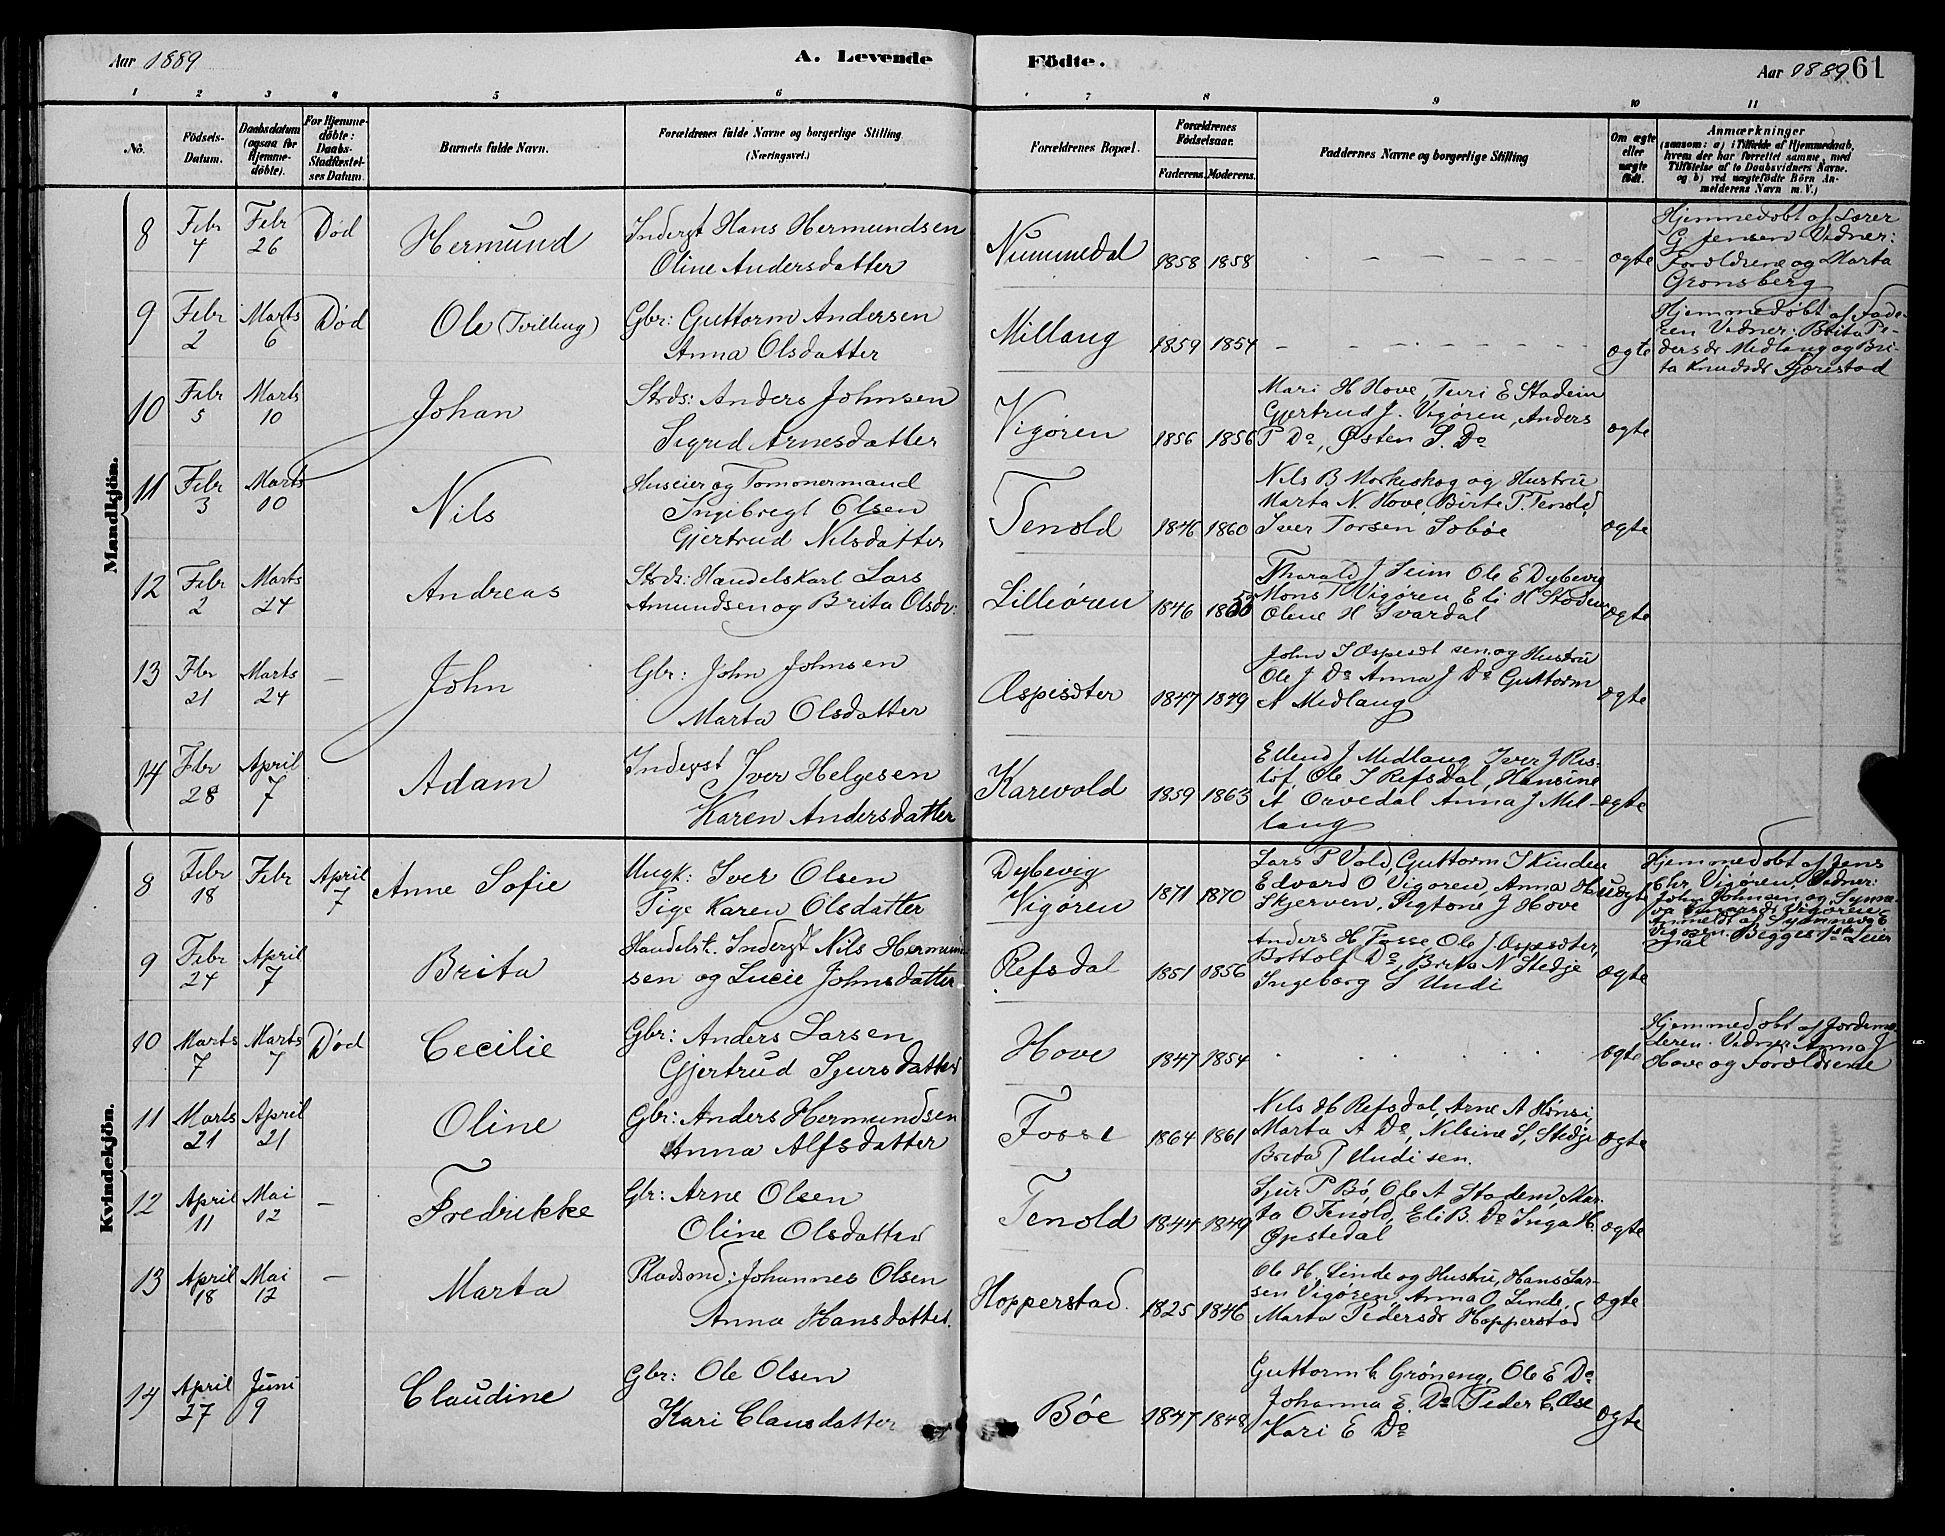 Aar 1889
A. Levende
Födte.
Aar 1889 61
1 2 3 4 5 6 7 8 9 10 11
No.
Födsels-Datum.
Daabsdatum (ogsaa for Hjemme-döbte).
For Hjemme-döbte: Daabs-Stadfæstel-ses Datum.
Barnets fulde Navn.
Forældrenes fulde Navne og borgerlige Stilling (Næringsvei.)
Forældrenes Bopæl.
Forældrenes Födselsaar.
Faderens. Moderens.
Faddernes Navne og borgerlige Stilling
Om ægte eller uægte födt.
Anmærkninger
(saasom: a) i Tilfælde af Hjemmedaab,
hvem der har forrettet samme, med
Tilföielse af to Daabsvidners Navne.
og b) ved uægtefödte Börn An-
melderens Navn m. V.)
Mandkjön.
8 Febr 4 Febr 26 Död Hermund
Inderst Hans Hermundsen
Oline Andersdatter
Nummedal 1858 1858 ægte
Hjemmedøbt af Lærer
G Jensen Vidner:
Forældrene og Marta
Grønsberg
9 Febr 2 Marts 6 Död Ole (Tvilling)
Gbr: Guttorm Andersen
Anna Olsdatter
Millang 1859 1854 ægte
Hjemmedøbt af Fade-
ren Vidner: Brita Pe-
dersdr Medlang og Bri-
ta Knudsdr
10 Febr 5 Marts 10 Johan
Strds: Anders Johnsen
Sigrid Arnesdatter
Vigøren 1856 1856
Mari H Hove, Turi E Stadein
Gjertrud J. Vigøren, Anders
P Do, Østen S. Do
ægte
11 Febr 3 Marts 10 Nils
Huseier og Tømmermand
Ingebregt Olsen
Gjertrud Nilsdatter
Tenold 1846 1860
Nils B Morkeskog og Hustru
Marta N. Hove, Birte T. Tenold
Iver Torsen Sobøe
ægte
12 Febr 2 Marts 24 Andreas
Strds: Handelskarl Lars
Amundsen og Brita Olsdr:
Lilleøren 1846
Tharald J Seim Ole E Dybevig
Mons T Vigøren, Eli H Staden
Oline H Svardal
ægte
13 Fbr 21 Marts 24 – John
Gbr: John Johnsen
Marta Olsdatter
Æspisdter 1847 1849
John I Æspesdt sen. og Hustru
Ole J Do Anna J Do Guttorm
A Medlang
ægte
14 Fbr 28 April 7 Adam
Inderst Iver Helgesen
Karen Andersdatter
Karevold 1859 1863
Ellend J Medlang Iver J
Ole I Refsdal, Hansine
A Orvedal Anna J Mil-
lang
ægte
Kvindekjön.
8 Febr 18 Febr April 7 Anne Sofie
Ungk: Iver Olsen
Pige Karen Olsdatter
Dybevig
Vigøren
1871 1870
Lars P Vold Guttorm I Kinden
Edvard O Vigøren Anna H
Skjerven, Sigtone J Hove
uægte
Hjemmedøbt af Jens
Chr. Vigøren, Vidner:
John Johnsen og Synne-
va
Anmeldt af Synneva E
Vigøren. Begges 1ste Leier
maal
9 Febr 24 April 7 Brita
Handelsk. Inderst Nils Hermund-
sen og Lucie Johnsdatter
Refsdal 1851 1856
Anders H Fosse Ole J. Æspesdter,
Bottolf Do, Brita N Stedje
Ingeborg S Undi
ægte
10 Marts 7 Marts 7 Død Cecilie
Gbr: Anders Larsen
Gjertrud Sjursdatter
Hove 1847 1854 ægte
Hjemmedøbt af Jordemo-
deren. Vidner Anna J
Hove og Forældrene
11 Marts 21 April 21 Oline
Gbr: Anders Hermundsen
Anna Alfsdatter
Fosse 1864 1861
Nils H Refsdal, Arne A Hønsi,
Marta A Do, Nilsine S, Stedje
Brita P Undi sen.
ægte
12 April 11 Mai 12 – Fredrikke
Gbr: Arne Olsen
Oline Olsdatter
Tenold 1844 1849
Sjur P Bø, Ole A Stadem, Mar-
ta O Tenold, Eli B. Do Inga H.
Øpstedal
ægte
13 April 18 Mai 12 – Marta
Pladsmd: Johannes Olsen
Anna Hansdatter.
Hopperstad. 1825 1846
Ole H. Linde og Hustru, Hans Lar-
sen Vigøren, Anna O Linde,
Marta Pedersdr Hopperstad
ægte
14 April 27 Juni 9 Claudine
Gbr: Ole Olsen
Kari Clausdatter
Bøe 1847 1848
Guttorm C Grøneng, Ole E Do
Johanna E. Do Peder C. Øse
Kari E Do
ægte